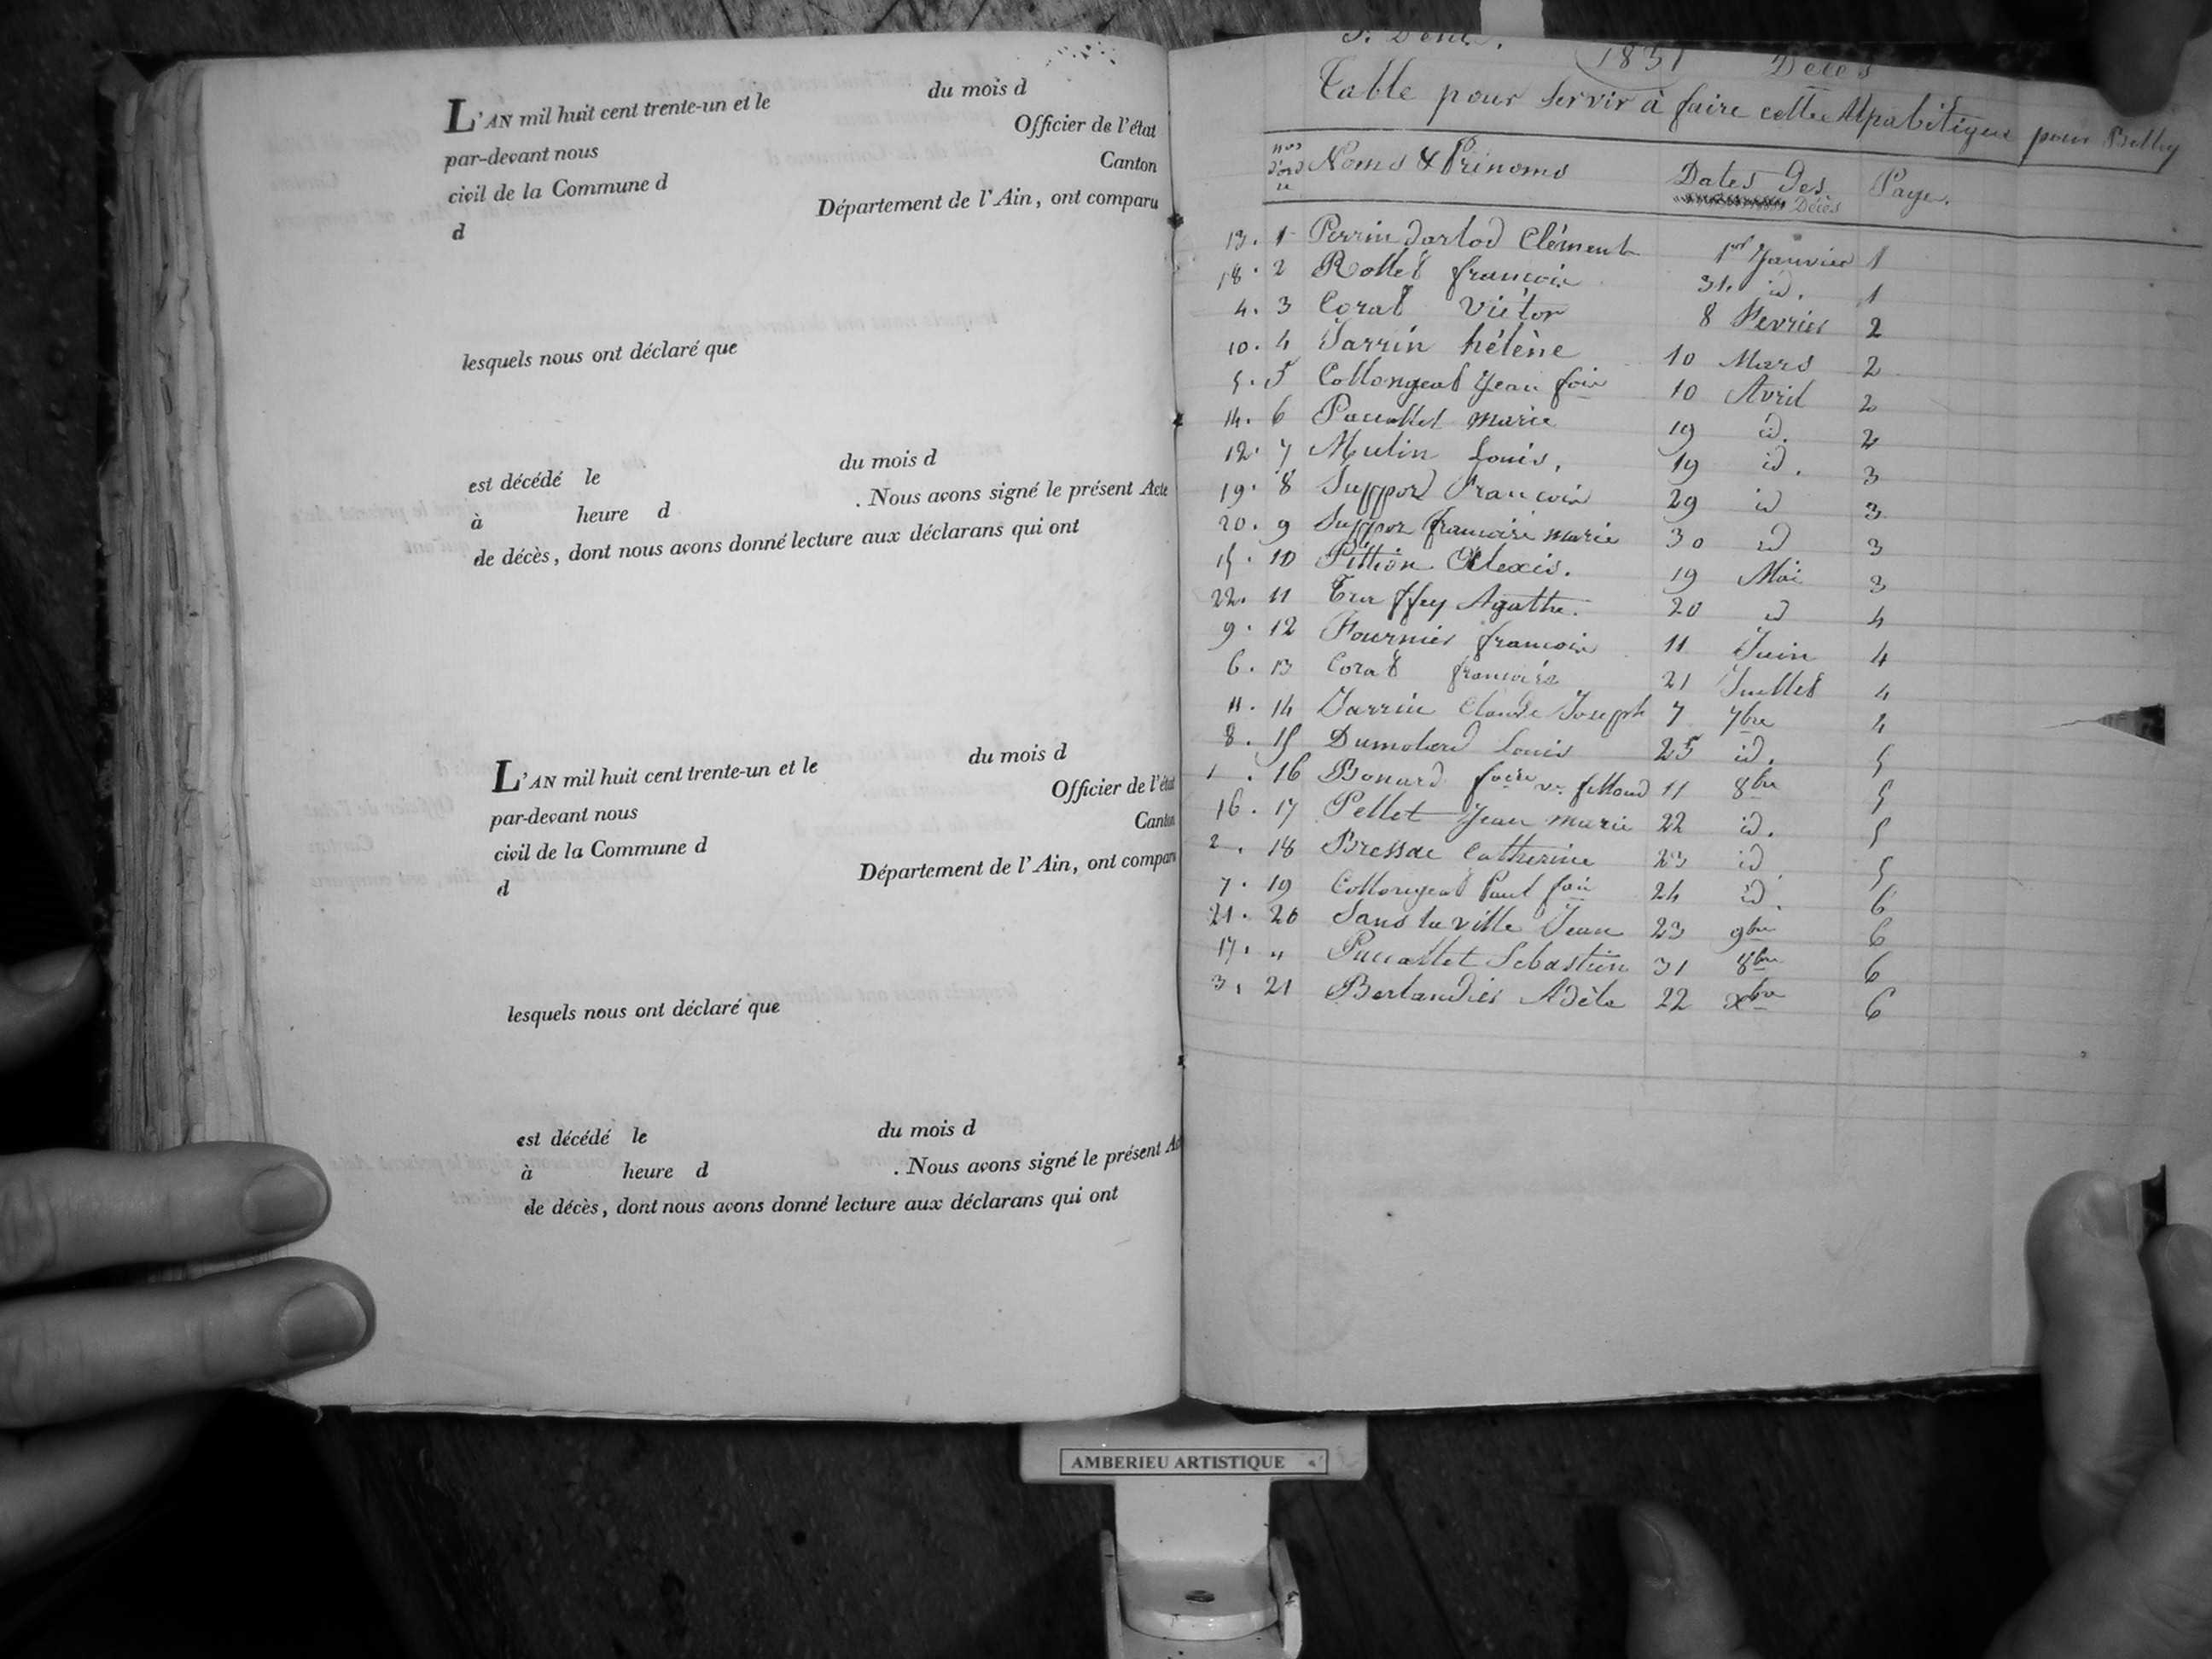 L'AN mil huit cent trente-un et le du mois d
par-devant nous Officier de l'état
civil de la Commune d Canton
d Département de l'Ain, ont comparu
lesquels nous ont déclaré que
est décédé le du mois d
à heure d . Nous avons signé le présent Acte
de décès, dont nous avons donné lecture aux déclarans qui ont
L'AN mil huit cent trente-un et le du mois d
par-devant nous Officier de l'état
civil de la Commune d Canton
d Département de l'Ain, ont comparu
lesquels nous ont déclaré que
est décédé le du mois d
à heure d . Nous avons signé le présent Ac
de décès, dont nous avons donné lecture aux déclarans qui ont
1831 Décès
Table pour servir à faire celle Alpabétique pour Belley
nos d'ordre Noms & Prénoms Dates des Décès Page.
13. 1 Perrin dartod Clément 1er Janvier 1
18. 2 Rollet francois 31. id. 1
4. 3 Corat Victor 8 Fevrier 2
10. 4 Jarrin hélène 10 Mars 2
5. 5 Collongeat Jean fois 10 Avril 2
14. 6 Paccallet marie 19 id. 2
12. 7 Mulin Louis. 19 id. 3
19. 8 Suppod Francois 29 id 3
20. 9 Suppor francoise marie 30 id 3
15. 10 Pittion Alexis. 19 Mai 3
22. 11 Truffey Agathe. 20 id 4
9. 12 Fournier francois 11 Juin 4
6. 13 Corat francois 21 Juillet 4
11. 14 Jarrin Claude Joseph 7 7bre 4
8. 15 Dumolard Louis 25 id. 5
1. 16 Bonard foise ve filloud 11 8bre 5
16. 17 Pellet Jean marie 22 id. 5
2. 18 Bressac Catherine 23 id. 5
7. 19 Collongeat Paul fois 24 id. 6
21. 20 Sans la ville Jean 23 9bre 6
17. " Paccallet Sebastien 31 8bre 6
3. 21 Berlandier Adèle 22 xbre 6
AMBERIEU ARTISTIQUE